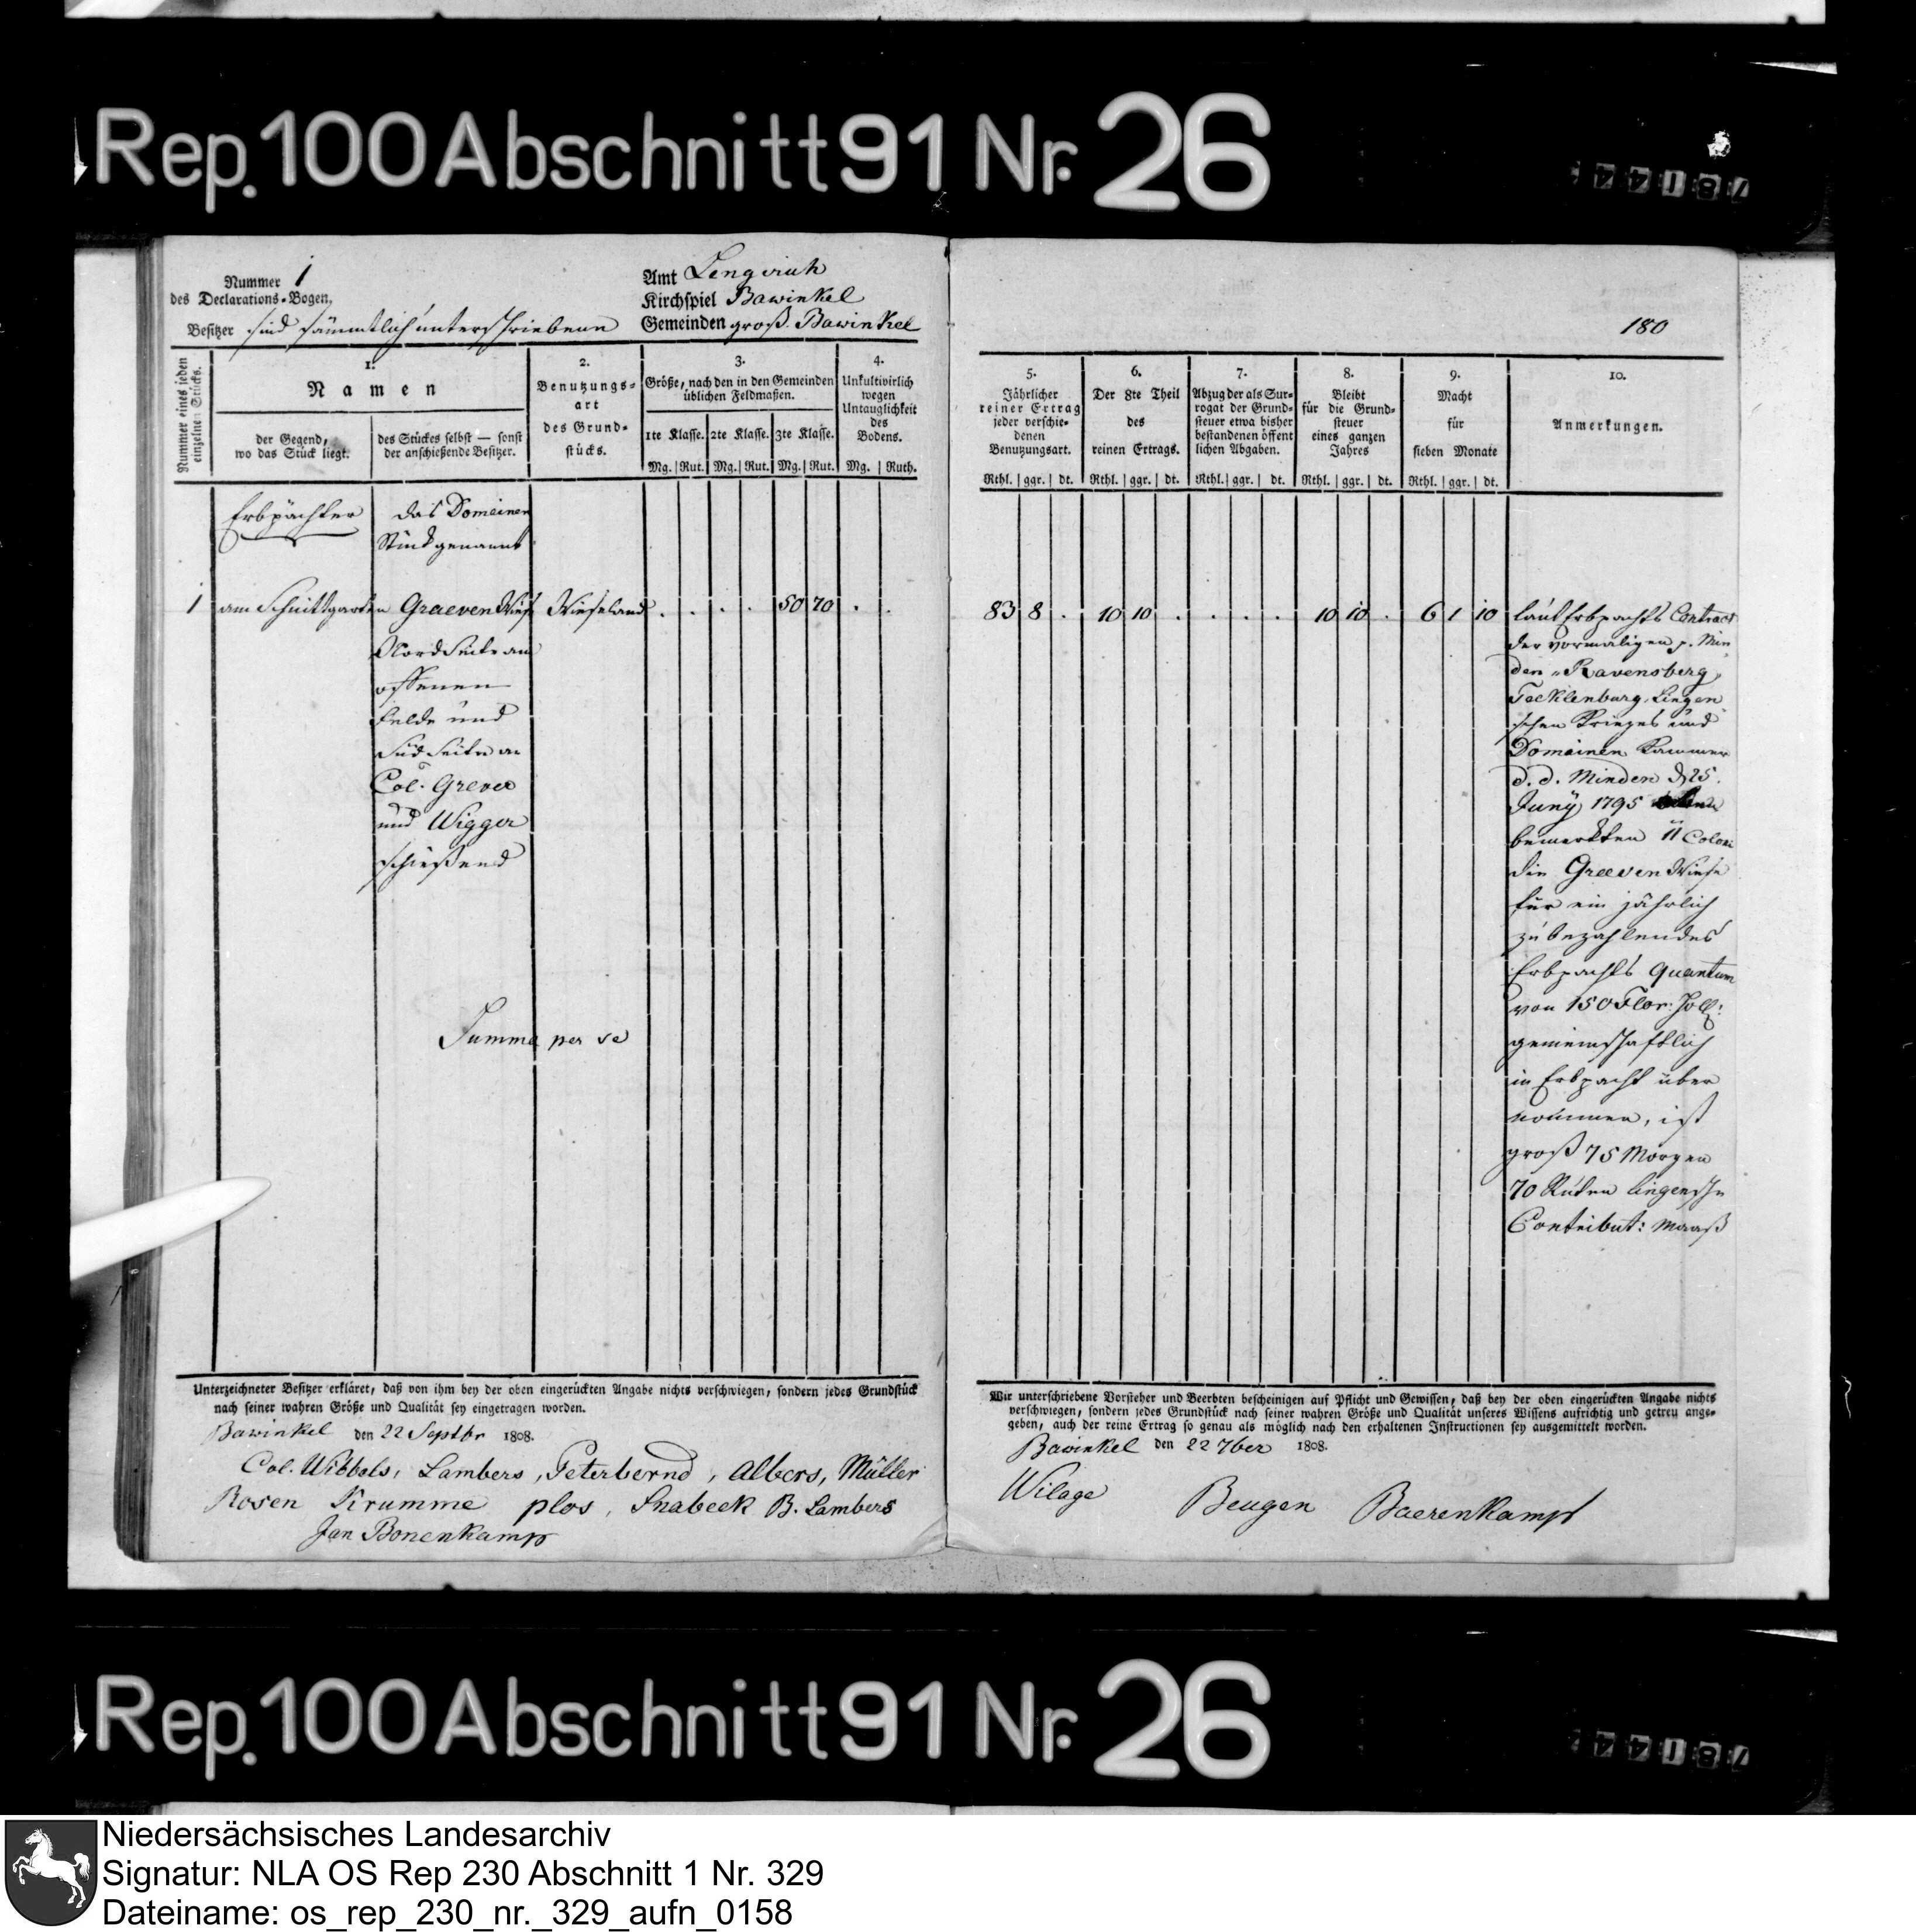 Rep. 100 Abschnitt 91 Nr. 26
78144
Nummer 1
des Declarations-Bogen.
Besitzer sind sämmtlich unterschriebene
Amt Lengerich
Kirchspiel Bawinkel
Gemeinden groß Bawinkel
Nummer eines jeden einzelne Stücks.
1.
Namen
der Gegend,
wo das Stück liegt.
des Stückes selbst — sonst
der anschießende Besitzer.
2.
Benutzungs-
art
des Grund-
stücks.
3.
Größe, nach den in den Gemeinden
üblichen Feldmaßen.
1te Klasse. 2te Klasse. 3te Klasse.
Mg. Rut. Mg. Rut. Mg. Rut.
4.
Unkultivirlich
wegen
Untauglichkeit
des
Bodens.
Mg. Ruth.
Erbpächter
das Domainen
Stück genannt
1 am Schüttgarten Graeven Wiese Wieseland . . . . 50 70 . .
Nordseite am
offenen
Felde und
Südseite an
Col. Grever
und Wigger
schießend
Summa per se
Unterzeichneter Besitzer erkläret, daß von ihm bey der oben eingerückten Angabe nichts verschwiegen, sondern jedes Grundstück
nach seiner wahren Größe und Qualität sey eingetragen worden.
Bawinkel den 22 Septbr 1808.
Col. Wibbels, Lambers, Peterbernd, Albers, Müller
Rosen Krumme plos, Snabeek B. Lambers
Jan Bonenkamp
180
5.
Jährlicher
reiner Ertrag
jeder verschie-
denen
Benutzungsart.
Rthl. ggr. dt.
6.
Der 8te Theil
des
reinen Ertrags.
Rthl. ggr. dt.
7.
Abzug der als Sur-
rogat der Grund-
steuer etwa bisher
bestandenen öffent
lichen Abgaben.
Rthl. ggr. dt.
8.
Bleibt
für die Grund-
steuer
eines ganzen
Jahres
Rthl. ggr. dt.
9.
Macht
für
sieben Monate
Rthl. ggr. dt.
10.
Anmerkungen.
83 8 . 10 10 . . . . 10 10 . 6 1 10
laut Erbpachts Contract
der vormaligen p. Min
den „Ravensberg,
Tecklenburg, Lingen
schen Krieges und
Domainen Kammer
d. d. Minden d 25.
Juny 1795
bemerkten 11 Coloni
die Graeven Wiese
für ein jährlich
zu bezahlendes
Erbpachts Quantum
von 150 Flor: Holl:
gemeinschaftlich
in Erbpacht über
nommen, ist
groß 75 Morgen
70 Ruten Lingensche
Contribut: Maaß
Wir unterschriebene Vorsteher und Beerbten bescheinigen auf Pflicht und Gewissen, daß bey der oben eingerückten Angabe nichts
verschwiegen, sondern jedes Grundstück nach seiner wahren Größe und Qualität unseres Wissens aufrichtig und getreu ange-
geben, auch der reine Ertrag so genau als möglich nach den erhaltenen Instructionen sey ausgemittelt worden.
Bawinkel den 22 7ber 1808.
Wilage Beugen Baerenkamp
Rep. 100 Abschnitt 91 Nr. 26
78144
Niedersächsisches Landesarchiv
Signatur: NLA OS Rep 230 Abschnitt 1 Nr. 329
Dateiname: os_rep_230_nr._329_aufn_0158